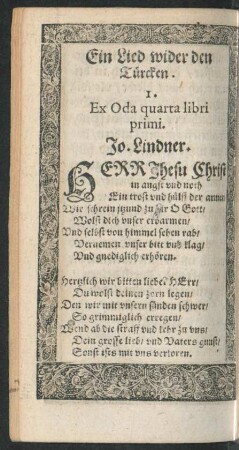 Ein Lied wider den
Türcken.
1.
Ex Oda quarta libri
primi.
Jo. Lindner.
HERR Jhesu Christ
in angst vnd noth
Ein trost vnd hülff der armen
Wir schrein jtzund zu dir O Gott/
Wolst dich vnser erbarmen/
Vnd selbst von himmel sehen rab/
Vernemen vnser bitt vnd klag/
Vnd gnediglich erhören.
Hertzlich wir bitten lieber HErr/
Du wolst deinen zorn legen/
Den wir mit vnsern sünden schwer/
So grimmiglich erregen/
Wend ab die straff vnd kehr zu vns/
Dein grosse lieb/ vnd Vaters gunst/
Sonst ists mit vns verloren.